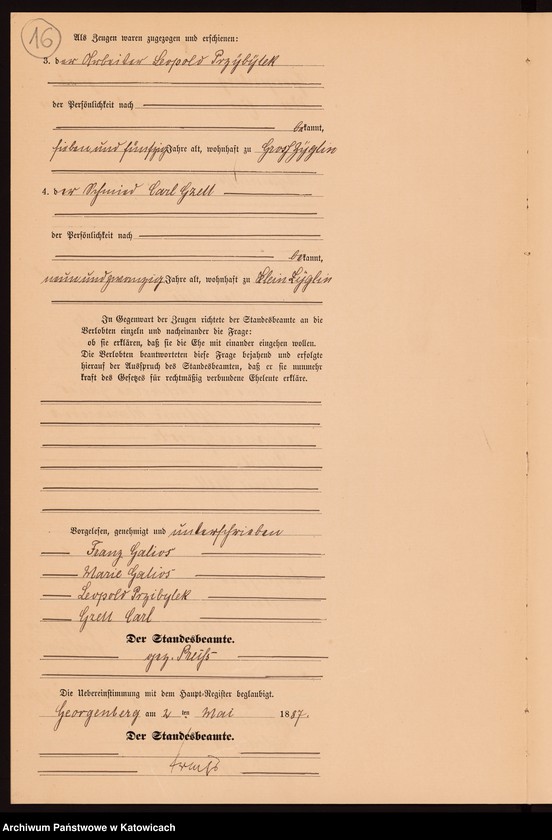 16
Als Zeugen waren zugezogen und erschienen:
3. der Arbeiter Leopold Przybylek
der Persönlichkeit nach
bekannt,
sieben und fünfzig Jahre alt, wohnhaft zu Groß Zyglin
4. der Schmied Carl Gzell
der Persönlichkeit nach
bekannt,
neunundzwanzig Jahre alt, wohnhaft zu Klein Zyglin
In Gegenwart der Zeugen richtete der Standesbeamte an die
Verlobten einzeln und nacheinander die Frage:
ob sie erklären, daß sie die Ehe mit einander eingehen wollen.
Die Verlobten beantworteten diese Frage bejahend und erfolgte
hierauf der Ausspruch des Standesbeamten, daß er sie nunmehr
kraft des Gesetzes für rechtmäßig verbundene Eheleute erkläre.
Vorgelesen, genehmigt und unterschrieben
Franz Galios
Marie Galios
Leopold Przibylek
Gzell Carl
Der Standesbeamte.
gez. Preiß
Die Uebereinstimmung mit dem Haupt-Register beglaubigt.
Georgenberg am 2 ten Mai 1887.
Der Standesbeamte.
Preiß
Archiwum Państwowe w Katowicach